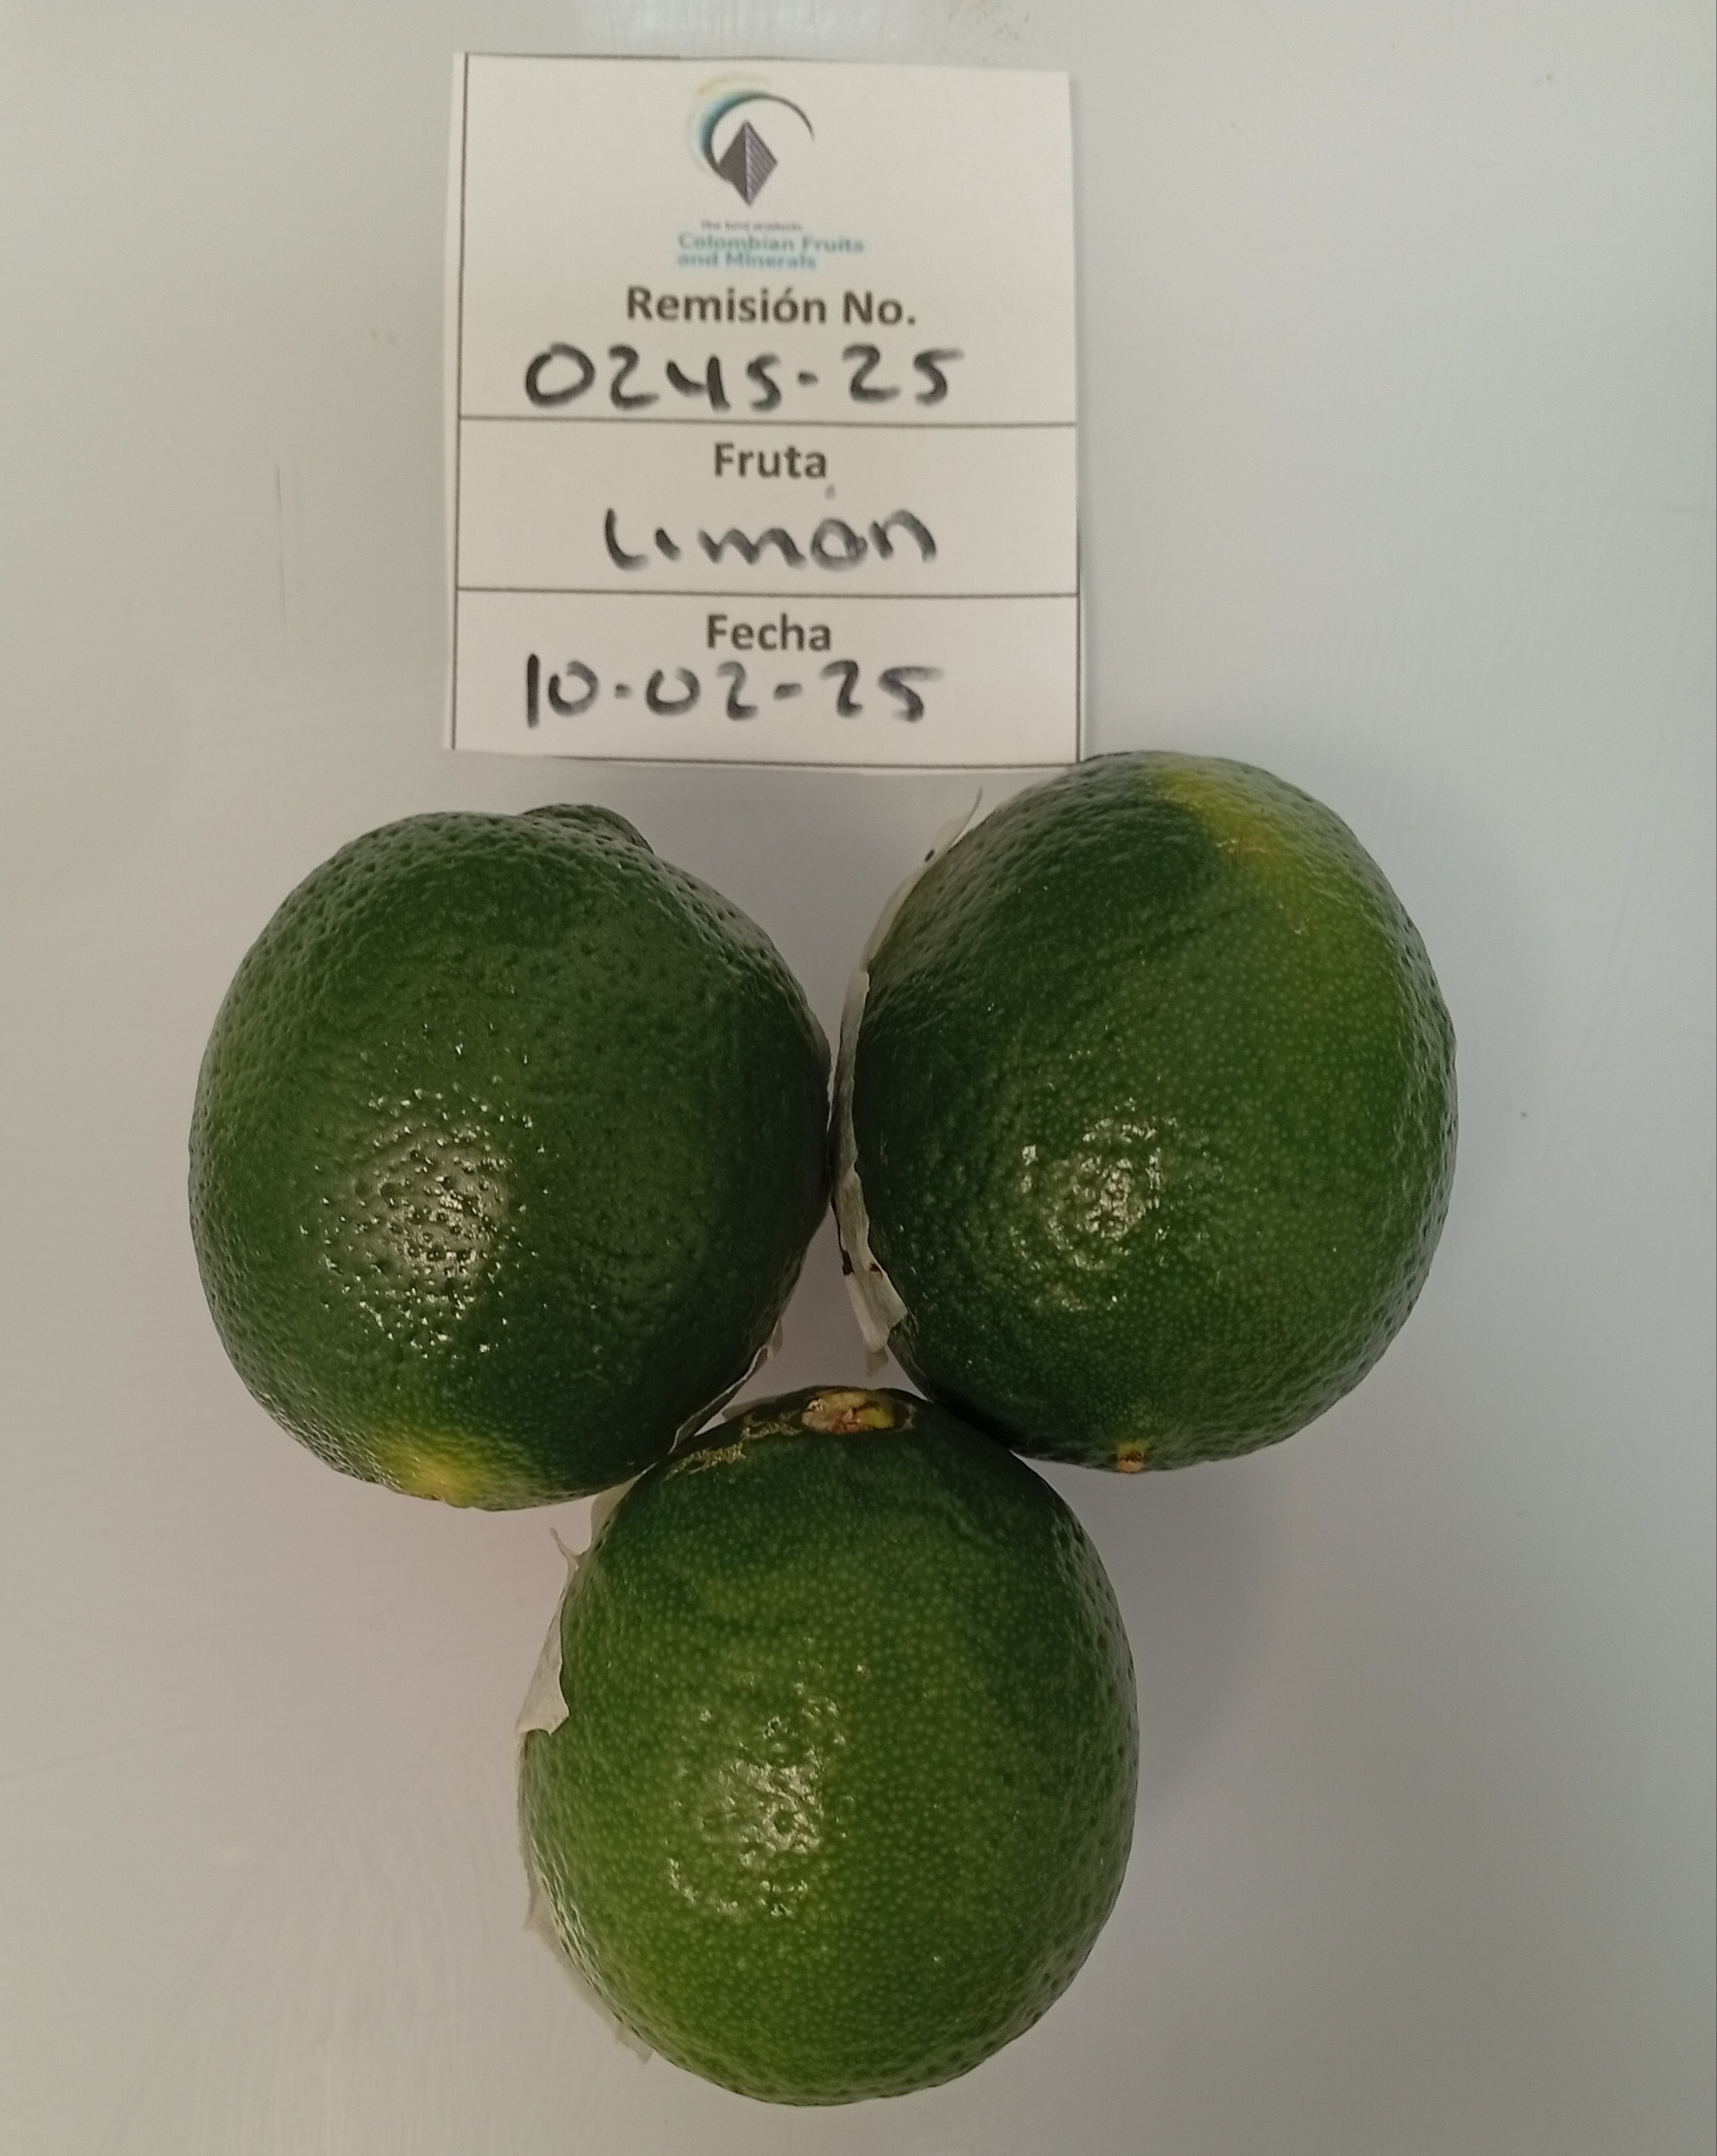 The best products
Colombian Fruits
and Minerals
Remisión No.
0245-25
Fruta
Limon
Fecha
10-02-25